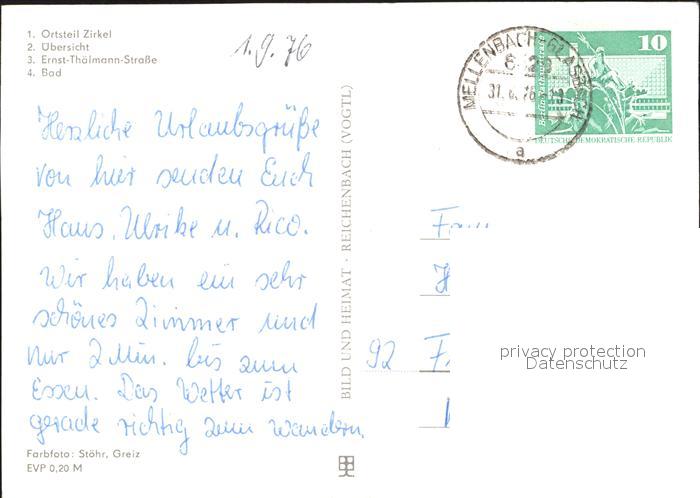 1. Ortsteil Zirkel
2. Übersicht
3. Ernst-Thälmann-Straße
4. Bad
1.9.76
MELLENBACH-GLASBACH
a
10
DEUTSCHE DEMOKRATISCHE REPUBLIK
Herzliche Urlaubsgrüße
von hier senden Euch
Hans, Ulrike u. Rico.
Wir haben ein sehr
schönes Zimmer und
nur 2 Min. bis zum
Essen. Das Wetter ist
gerade richtig zum wandern.
BILD UND HEIMAT · REICHENBACH (VOGTL)
92
privacy protection
Datenschutz
Farbfoto: Stöhr, Greiz
EVP 0,20 M